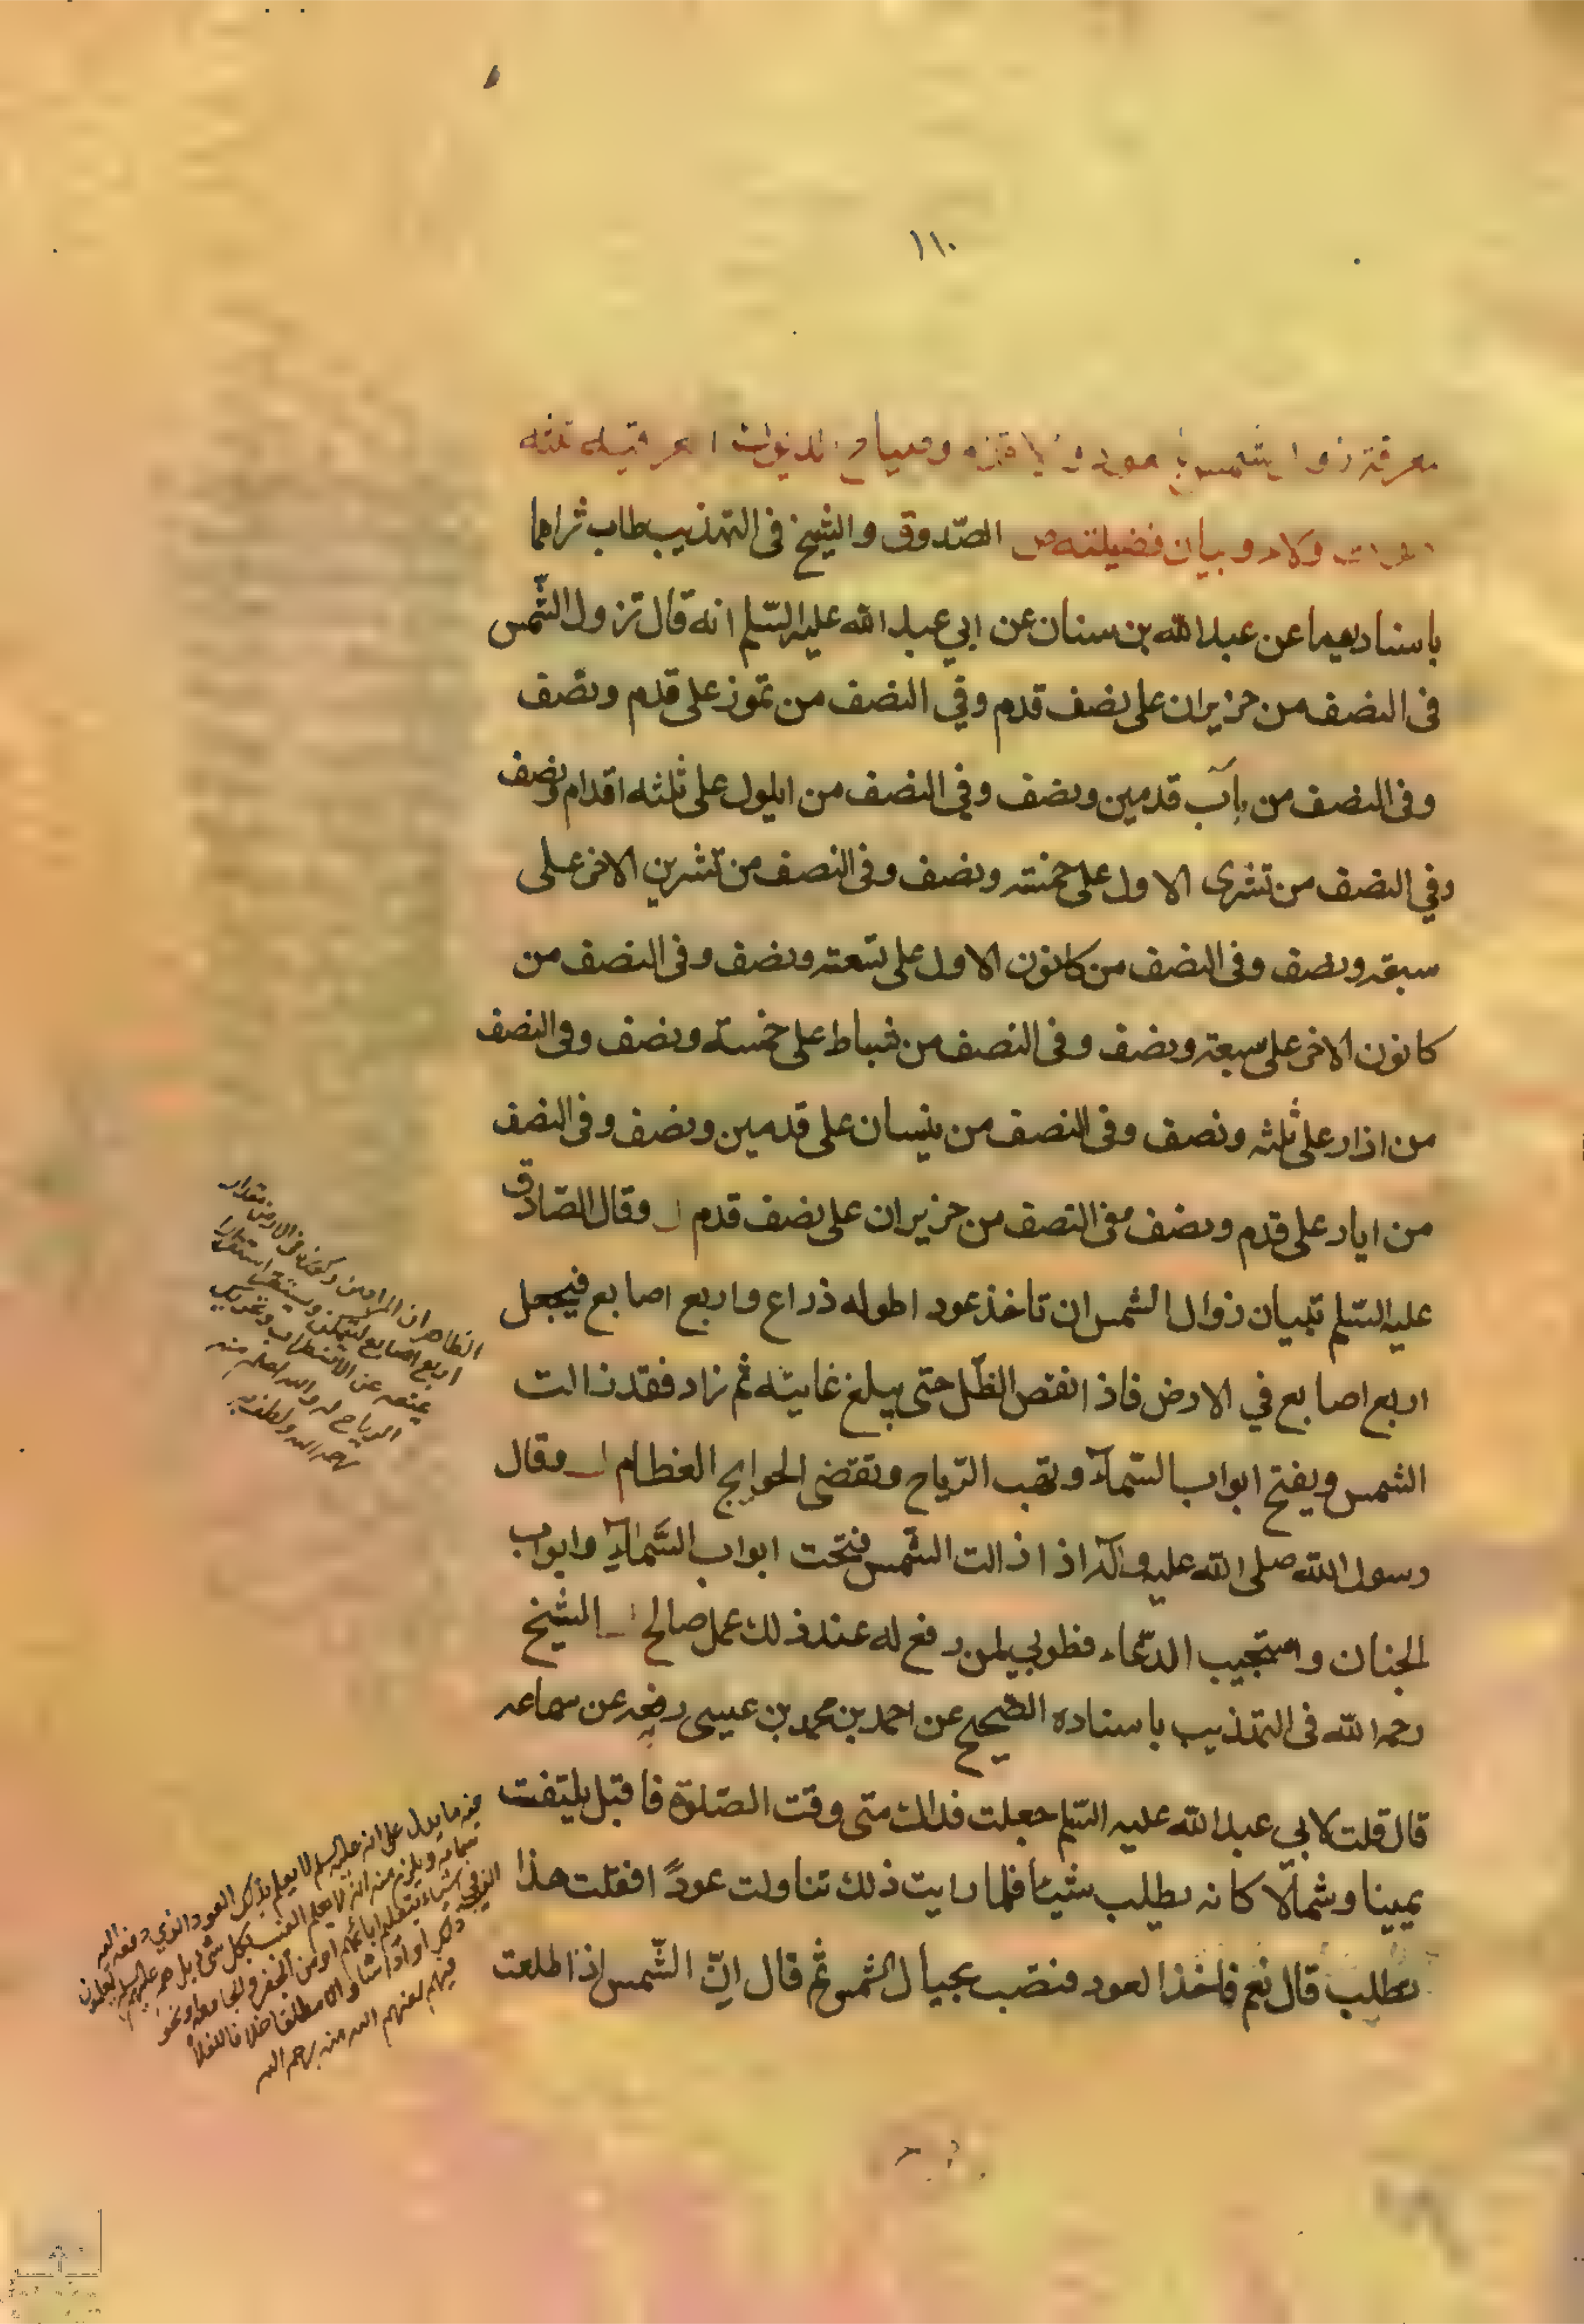 ١١٠
معرفة زوال الشمس
وبيان فضيلته ص الصّدوق والشيخ فى التهذيب طاب ثراهما
باسناديهما عن عبد الله بن سنان عن ابي عبد الله عليه السّلم انه قال تزول الشّمس
فى النصف من حزيران على نصف قدم وفي النصف من تموز على قدم ونصف
وفى النصف من بآب قدمين ونصف وفي النصف من ايلول على ثلثه اقدام ونصف
وفي النصف من تشرى الاول على خمسة ونصف وفى النصف من تشرين الاخر على
سبعة ونصف وفى النصف من كانون الاول على تسعة ونصف وفى النصف من
كانون الاخر على سبعة ونصف وفى النصف من شباط على خمسة ونصف وفى النصف
من اذار على ثلثه ونصف وفى النصف من نيسان على قدمين ونصف وفى النصف
من ايار على قدم ونصف وفى النصف من حزيران على نصف قدم وقال الصّادق
عليه السّلم تبيان زوال الشمس ان تاخذ عود اطوله ذراع واربع اصابع فيجعل
اربع اصابع في الارض فاذا نقص الظّل حتى يبلغ غايته ثم زاد فقد زالت
الشمس ويفتح ابواب السّمآء وتهب الرّياح وتقضى الحوايج العظام وقال
رسول الله صلى الله عليه وآله اذ ازالت الشّمس فتحت ابواب السّمآء وابواب
الجنان واستجيب الدّعاء فطوبي لمن رفع له عند ذلك عمل صالح الشيخ
رحمه الله فى التهذيب باسناده الصّحيح عن احمد بن محمد بن عيسى رفعه عن سماعه
قال قلت لابي عبد الله عليه السّلم جعلت فداك متى وقت الصّلوة فاقبل يلتفت
يمينا وشمالّا كانه يطلب شيئا فلما رايت ذلك تناولت عودً افقلت هذا
تطلب قال نعم فاخذ العود فنصب بحيال الشمس ثم قال انّ الشّمس اذا طلعت
الظاهر ان المراد من ركزه فى الارض مقدار
اربع اصابع ليتمكن ويستقر استقرارا
يمنعه عن الاضطراب وتحريك
الرياح له والله اعلم منه
رحمه الله
فيه ما يدل على انه عليه السلم لا يعلم بذلك العود الذي دفعه اليه
سماعه ويلزم منه انه لا يعلم الغيب بكل شئ بل هم عليهم السلم يعلمون